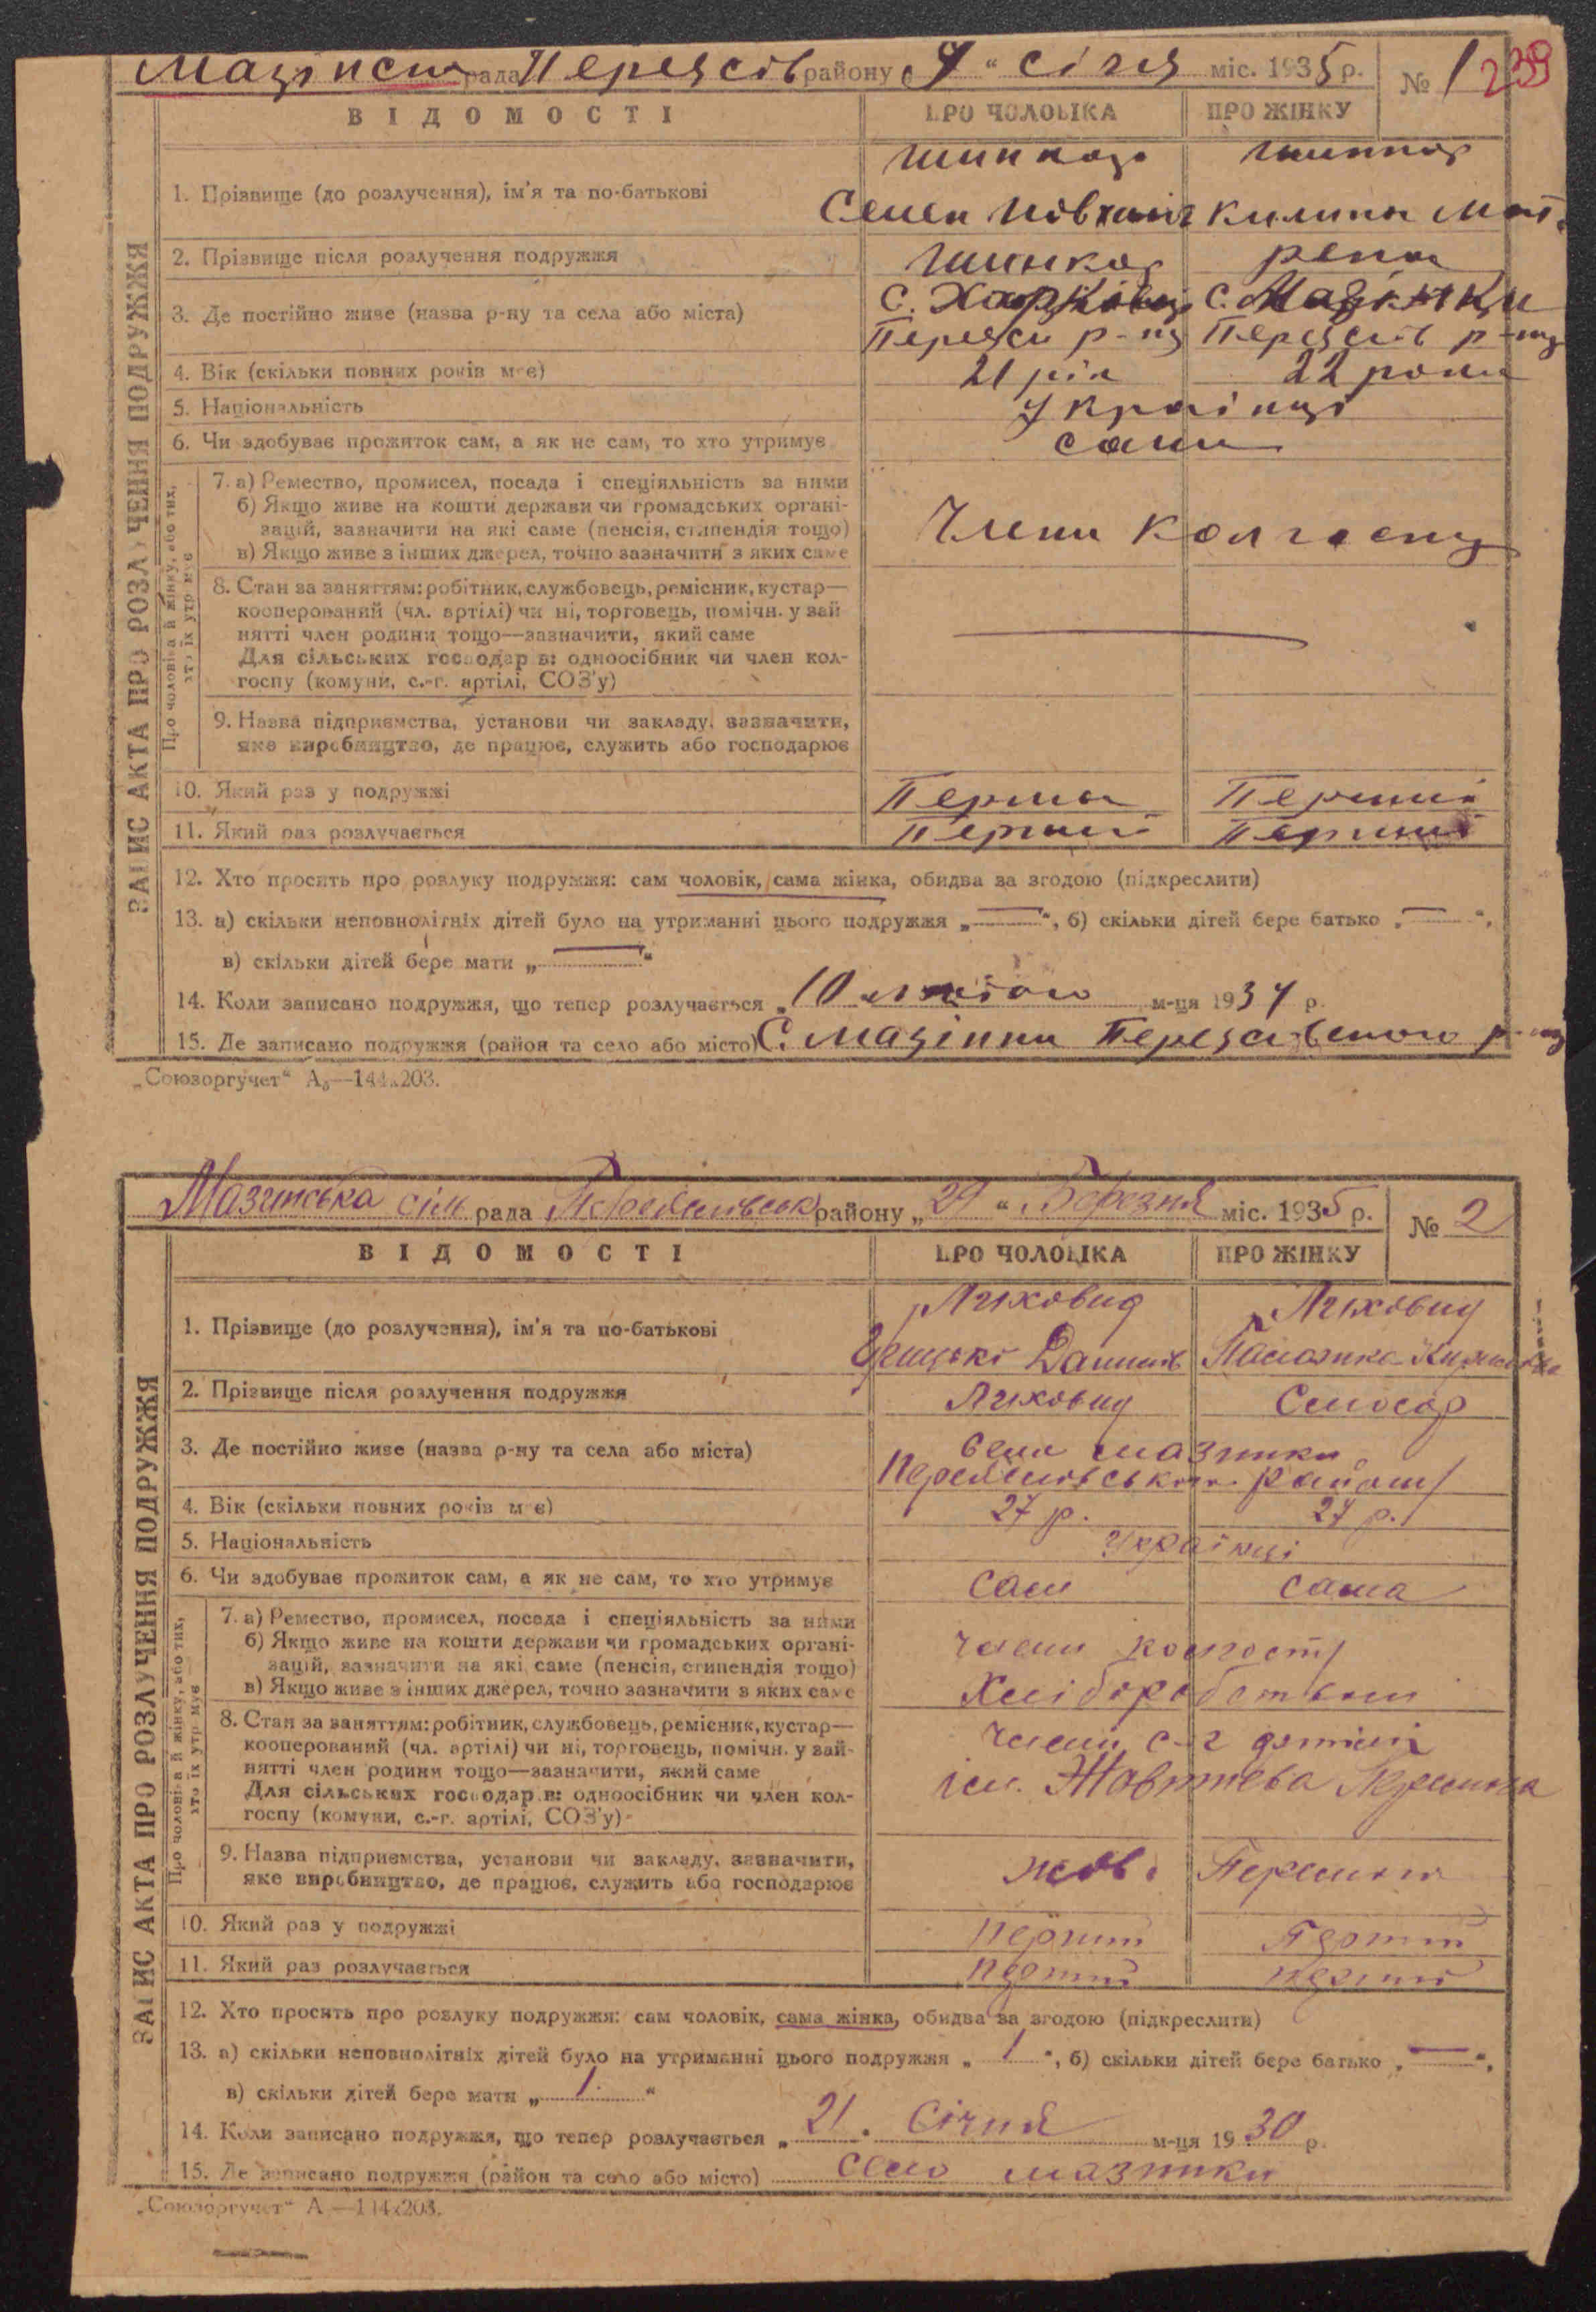 рада Переясів району „4“ січня міс. 1935 р. № 1
239
ВІДОМОСТІ ПРО ЧОЛОВІКА ПРО ЖІНКУ
ЗАПИС АКТА ПРО РОЗЛУЧЕННЯ ПОДРУЖЖЯ
Шинкар Шинкар
1. Прізвище (до розлучення), ім'я та по-батькові
Семен Килина
2. Прізвище після розлучення подружжя Шинкар
3. Де постійно живе (назва р-ну та села або міста) С. Харківці С. Мазінки
Переясл р-ну Переяслів р-ну
4. Вік (скільки повних років має) 21 рік 22 роки
5. Національність Украінці
6. Чи здобуває прожиток сам, а як не сам, то хто утримує сами
Про чоловіка й жінку, або тих, хто їх утримує
7. а) Ремество, промисел, посада і спеціяльність за ними
б) Якщо живе на кошти держави чи громадських органі-
зацій, зазначити на які саме (пенсія, стипендія тощо)
в) Якщо живе з інших джерел, точно зазначити з яких саме
Члени колгоспу
8. Стан за заняттям: робітник, службовець, ремісник, кустар—
кооперований (чл. артілі) чи ні, торговець, помічн. у зай
нятті член родини тощо—зазначити, який саме
Для сільських господарів: одноосібник чи член кол-
госпу (комуни, с.-г. артілі, СОЗ'у)
9. Назва підприємства, установи чи закладу, зазначити,
яке виробництво, де працює, служить або господарює
10. Який раз у подружжі Перший
11. Який раз розлучається Перший Перший
12. Хто просить про розлуку подружжя: сам чоловік, сама жінка, обидва за згодою (підкреслити)
13. а) скільки неповнолітніх дітей було на утриманні цього подружжя „—“, б) скільки дітей бере батько „—“,
в) скільки дітей бере мати „—“
14. Коли записано подружжя, що тепер розлучається „10 лютого м-ця 1934 р.
15. Де записано подружжя (район та село або місто) С. Мазінки Переяславського р-ну
„Союзоргучет“ А₅—144х203.
Мазінська сіль рада району „29“ Березня міс. 1935 р. № 2
ВІДОМОСТІ ПРО ЧОЛОВІКА ПРО ЖІНКУ
ЗАПИС АКТА ПРО РОЗЛУЧЕННЯ ПОДРУЖЖЯ
Лиховид Лиховид
1. Прізвище (до розлучення), ім'я та по-батькові
Данилів
2. Прізвище після розлучення подружжя Лиховид
3. Де постійно живе (назва р-ну та села або міста) Село мазінки
Переяслівського району
4. Вік (скільки повних років має) 27 р. 27 р.
5. Національність Українці
6. Чи здобуває прожиток сам, а як не сам, то хто утримує Сам Сама
Про чоловіка й жінку, або тих, хто їх утримує
7. а) Ремество, промисел, посада і спеціяльність за ними
б) Якщо живе на кошти держави чи громадських органі-
зацій, зазначити на які саме (пенсія, стипендія тощо)
в) Якщо живе з інших джерел, точно зазначити з яких саме
члени колгоспу
Хліборобством
8. Стан за заняттям: робітник, службовець, ремісник, кустар—
кооперований (чл. артілі) чи ні, торговець, помічн. у зай-
нятті член родини тощо—зазначити, який саме
Для сільських господарів: одноосібник чи член кол-
госпу (комуни, с.-г. артілі, СОЗ'у)
члени с-г артілі
ім. Жовтнева Перемога
9. Назва підприємства, установи чи закладу, зазначити,
яке виробництво, де працює, служить або господарює
жов. Перемога
10. Який раз у подружжі перший Перший
11. Який раз розлучається перший перший
12. Хто просить про розлуку подружжя: сам чоловік, сама жінка, обидва за згодою (підкреслити)
13. а) скільки неповнолітніх дітей було на утриманні цього подружжя „1“, б) скільки дітей бере батько „—“,
в) скільки дітей бере мати „1“
14. Коли записано подружжя, що тепер розлучається „21. Січня м-ця 1930 р.
15. Де записано подружжя (район та село або місто) село мазінки
„Союзоргучет“ А—144х203.